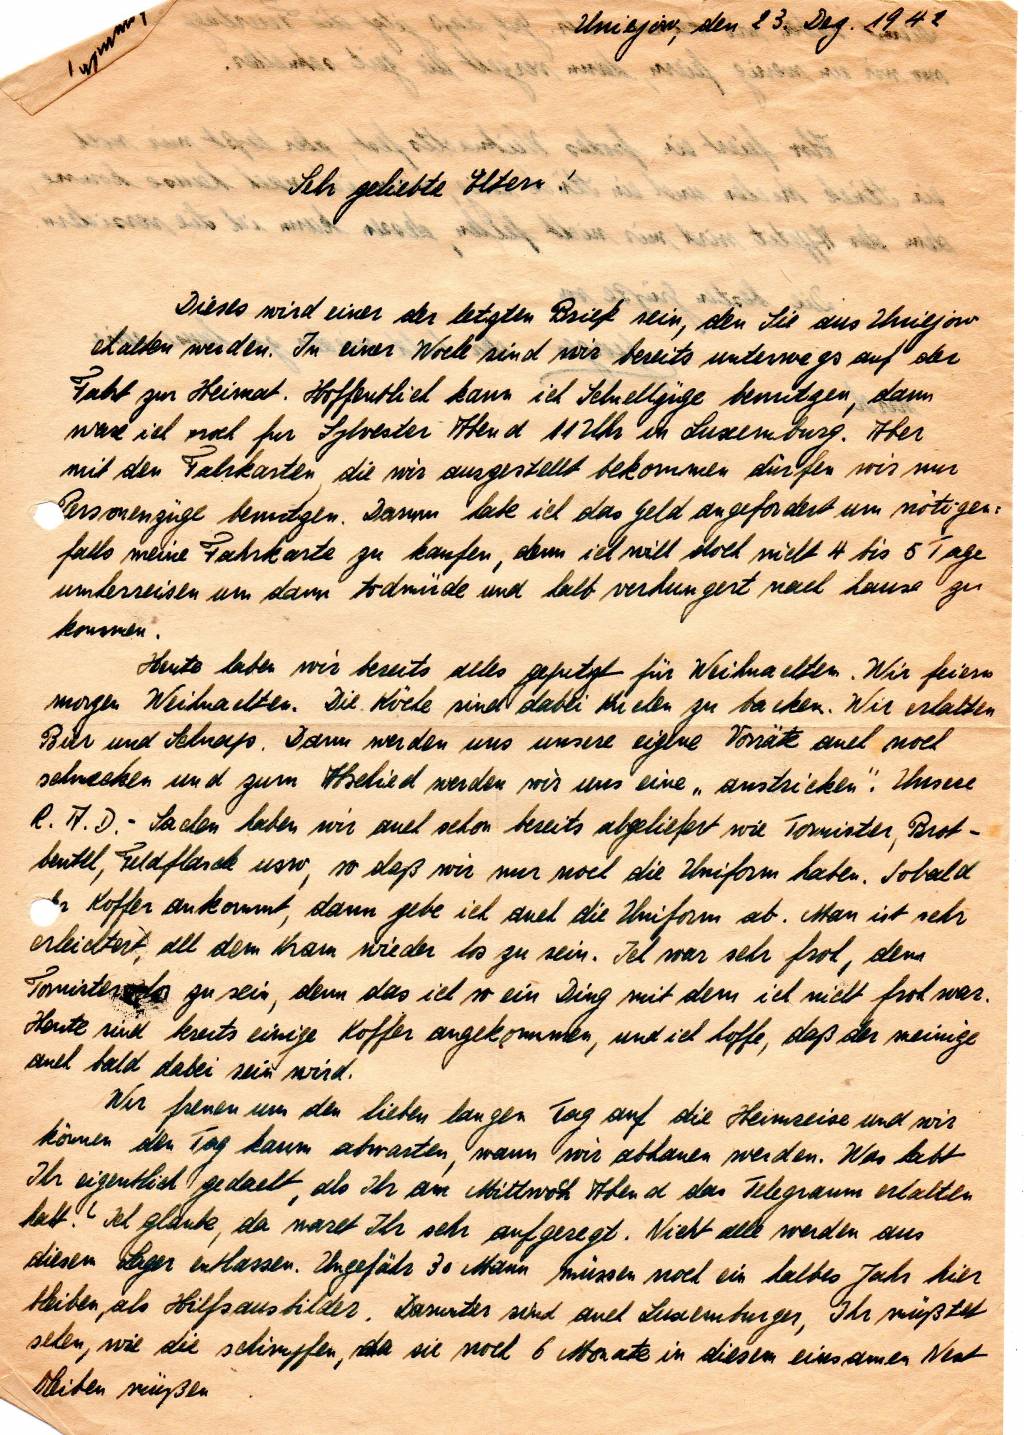 Uniejow, den 23. Dez. 1942
Sehr geliebte Eltern!
Dieses wird einer der letzten Brief sein, den Sie aus Uniejow
erhalten werden. In einer Woche sind wir bereits unterwegs auf der
Fahrt zur Heimat. Hoffentlich kann ich Schnellzüge benutzen, dann
ware ich noch fur Sylvester Abend 11 Uhr in Luxemburg. Aber
mit den Fahrkarten, die wir ausgestellt bekommen dürfen wir nur
Personenzüge benutzen. Darum habe ich das Geld angefordert um nötigen=
falls meine Fahrkarte zu kaufen, denn ich will doch nicht 4 bis 5 Tage
umherreisen um dann todmüde und halb verhungert nach hause zu
kommen.
Heute haben wir bereits alles geputzt für Weihnachten. Wir feiern
morgen Weihnachten. Die Köche sind dabei Kuchen zu backen. Wir erhalten
Bier und Schnaps. Dann werden uns unsere eigene Vorräte auch noch
schmecken und zum Abschied werden wir uns eine „anstricken". Unsere
R. A. D. - Sachen haben wir auch schon bereits abgeliefert wie Tornister, Brot-
beutel, Feldflasch usw, so daß wir nur noch die Uniform haben. Sobald
Koffer ankommt, dann gebe ich auch die Uniform ab. Man ist sehr
erleichtert, all dem Kram wieder los zu sein. Ich war sehr froh, denn
Tornister zu sein, denn das ich so ein Ding mit dem ich nicht froh war.
Heute sind bereits einige Koffer angekommen, und ich hoffe, daß der meinige
auch bald dabei sein wird.
Wir freuen um den lieben langen Tag auf die Heimreise und wir
können den Tag kaum abwarten, wann wir abhauen werden. Was habt
Ihr eigentlich gedacht, als Ihr am Mittwoch Abend das Telegramm erhalten
habt? Ich glaube, da waret Ihr sehr aufgeregt. Nicht alle werden aus
diesem Lager entlassen. Ungefähr 30 Mann müssen noch ein halbes Jahr hier
bleiben, als Hilfsausbilder. Darunter sind auch Luxemburger, Ihr müßtet
sehen, wie die schimpfen, da sie noch 6 Monate in diesem einsamen Nest
bleiben müßen